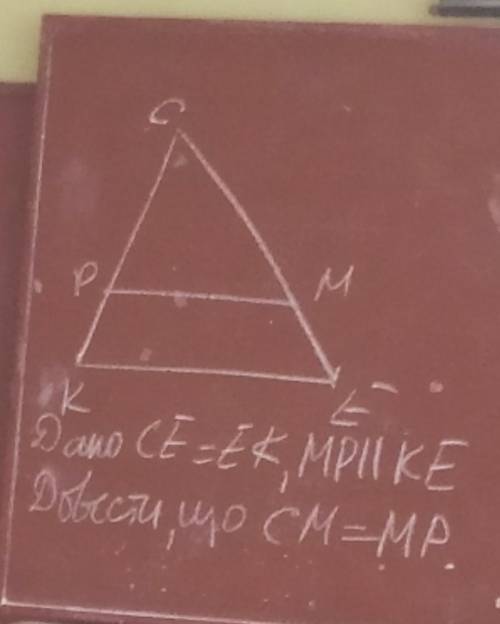 C
P M
K E
Дано CE=EK, MP||KE
Довести, що CM=MP.